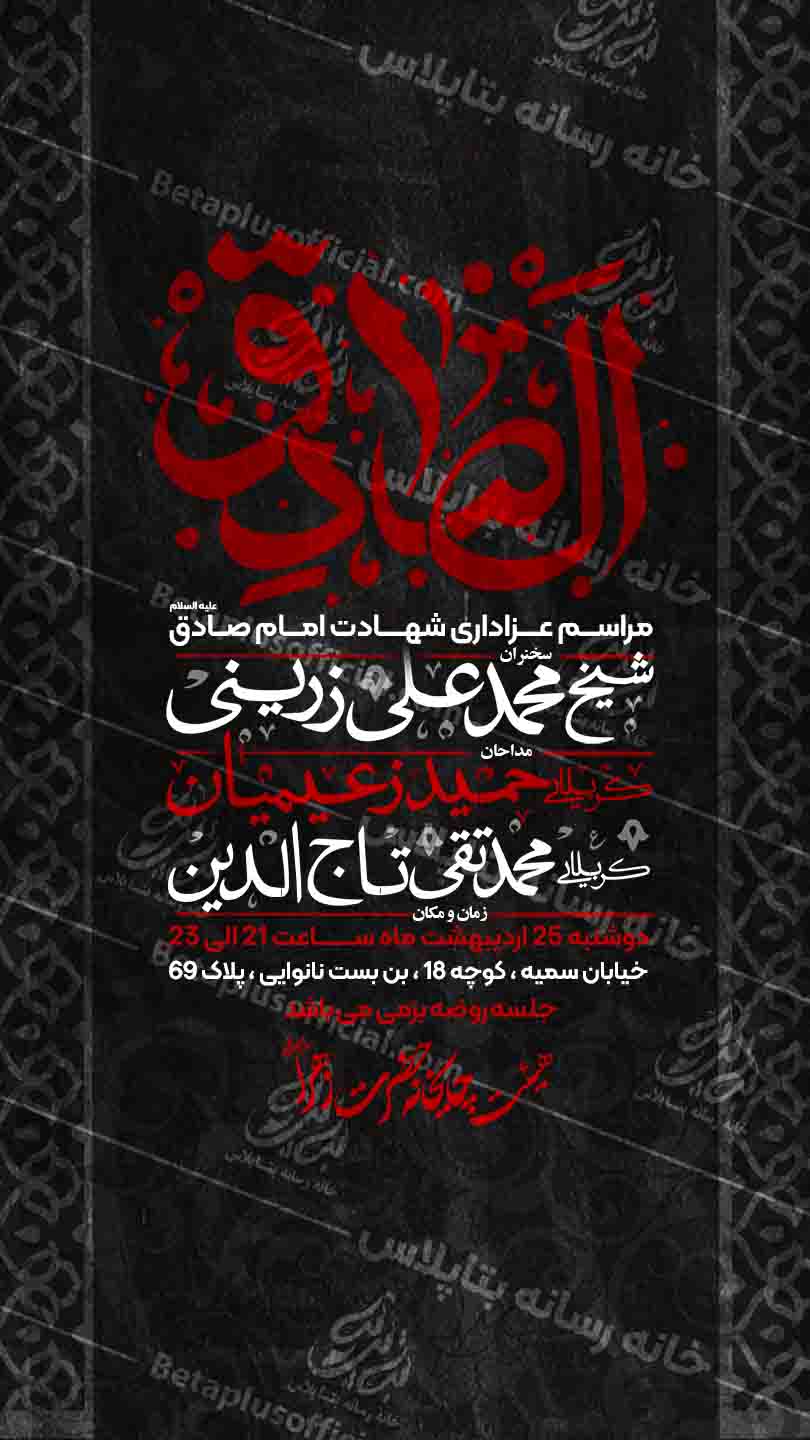 خانه رسانه بتاپلاس
Betaplusofficial.com
الصادق
خانه رسانه بتاپلاس
علیه السلام
مراسم عزاداری شهادت امام صادق
سخنران
شیخ محمدعلی زرینی
مداحان
کربلایی حمید زعیمیان
کربلایی محمدتقی تاج الدین
زمان و مکان
دوشنبه 25 اردیبهشت ماه ساعت 21 الی 23
خیابان سمیه ، کوچه 18 ، بن بست نانوایی ، پلاک 69
جلسه روضه بزمی می‌باشد
هیئت چایخانه حضرت زهرا
خانه رسانه بتاپلاس
Betaplusofficial